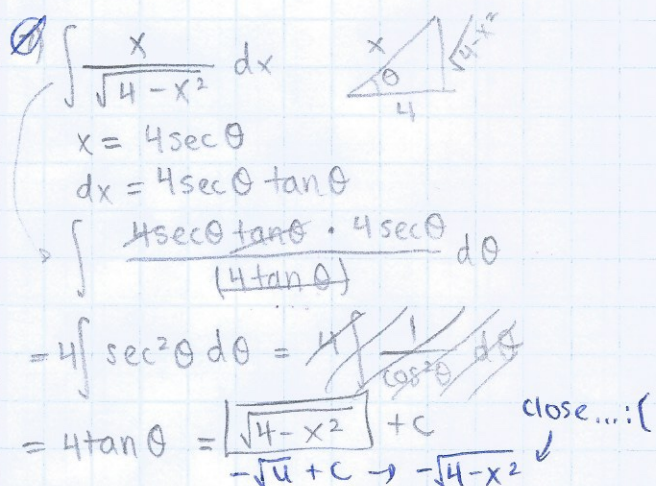 ∫ x / √(4-x²) dx
x √(4-x²) θ 4
x = 4secθ
dx = 4secθ tanθ
∫ 4secθ tanθ · 4secθ / (4 tan θ) dθ
= 4∫ sec²θ dθ = 4∫ 1/cos²θ dθ
= 4tanθ = √(4-x²) + c
close...:(
-√u + c → -√(4-x²)